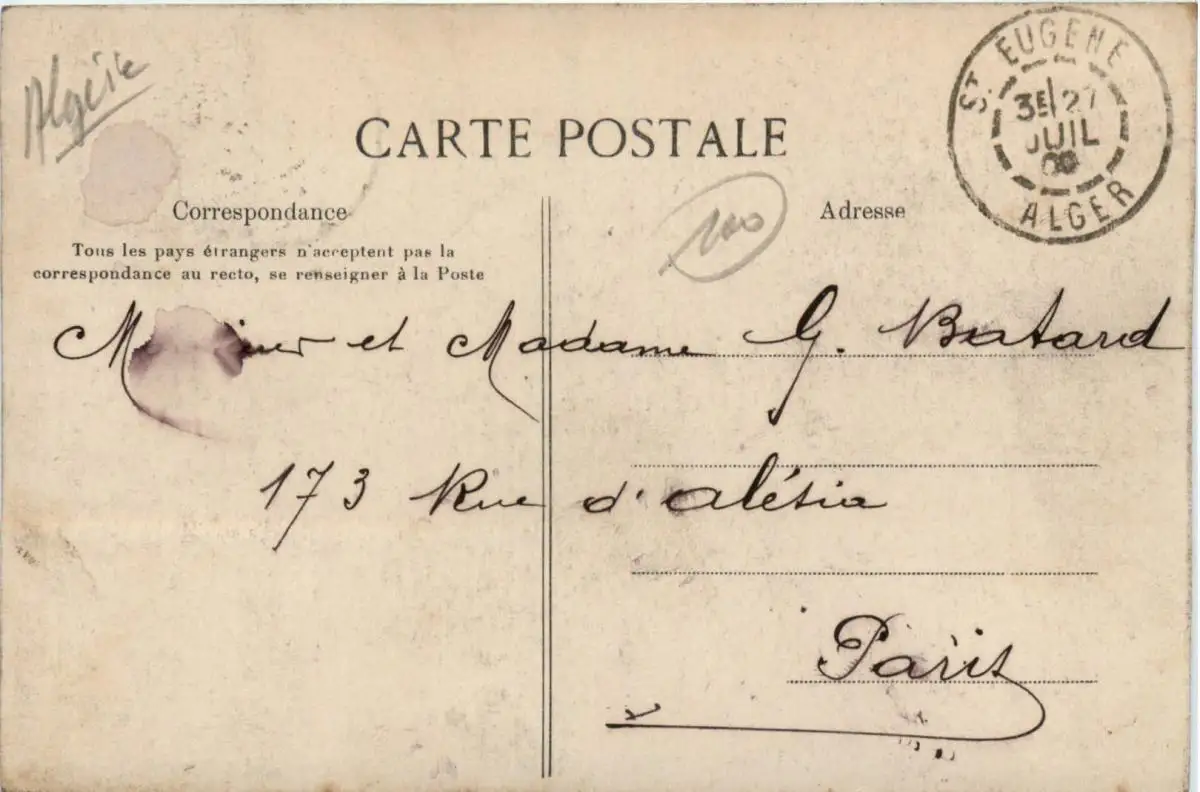 Algérie
ST EUGENE
3E 27
JUIL
ALGER
CARTE POSTALE
100
Correspondance
Adresse
Tous les pays étrangers n'acceptent pas la
correspondance au recto, se renseigner à la Poste
et Madame G. Batard
173 Rue d'alésia
Paris